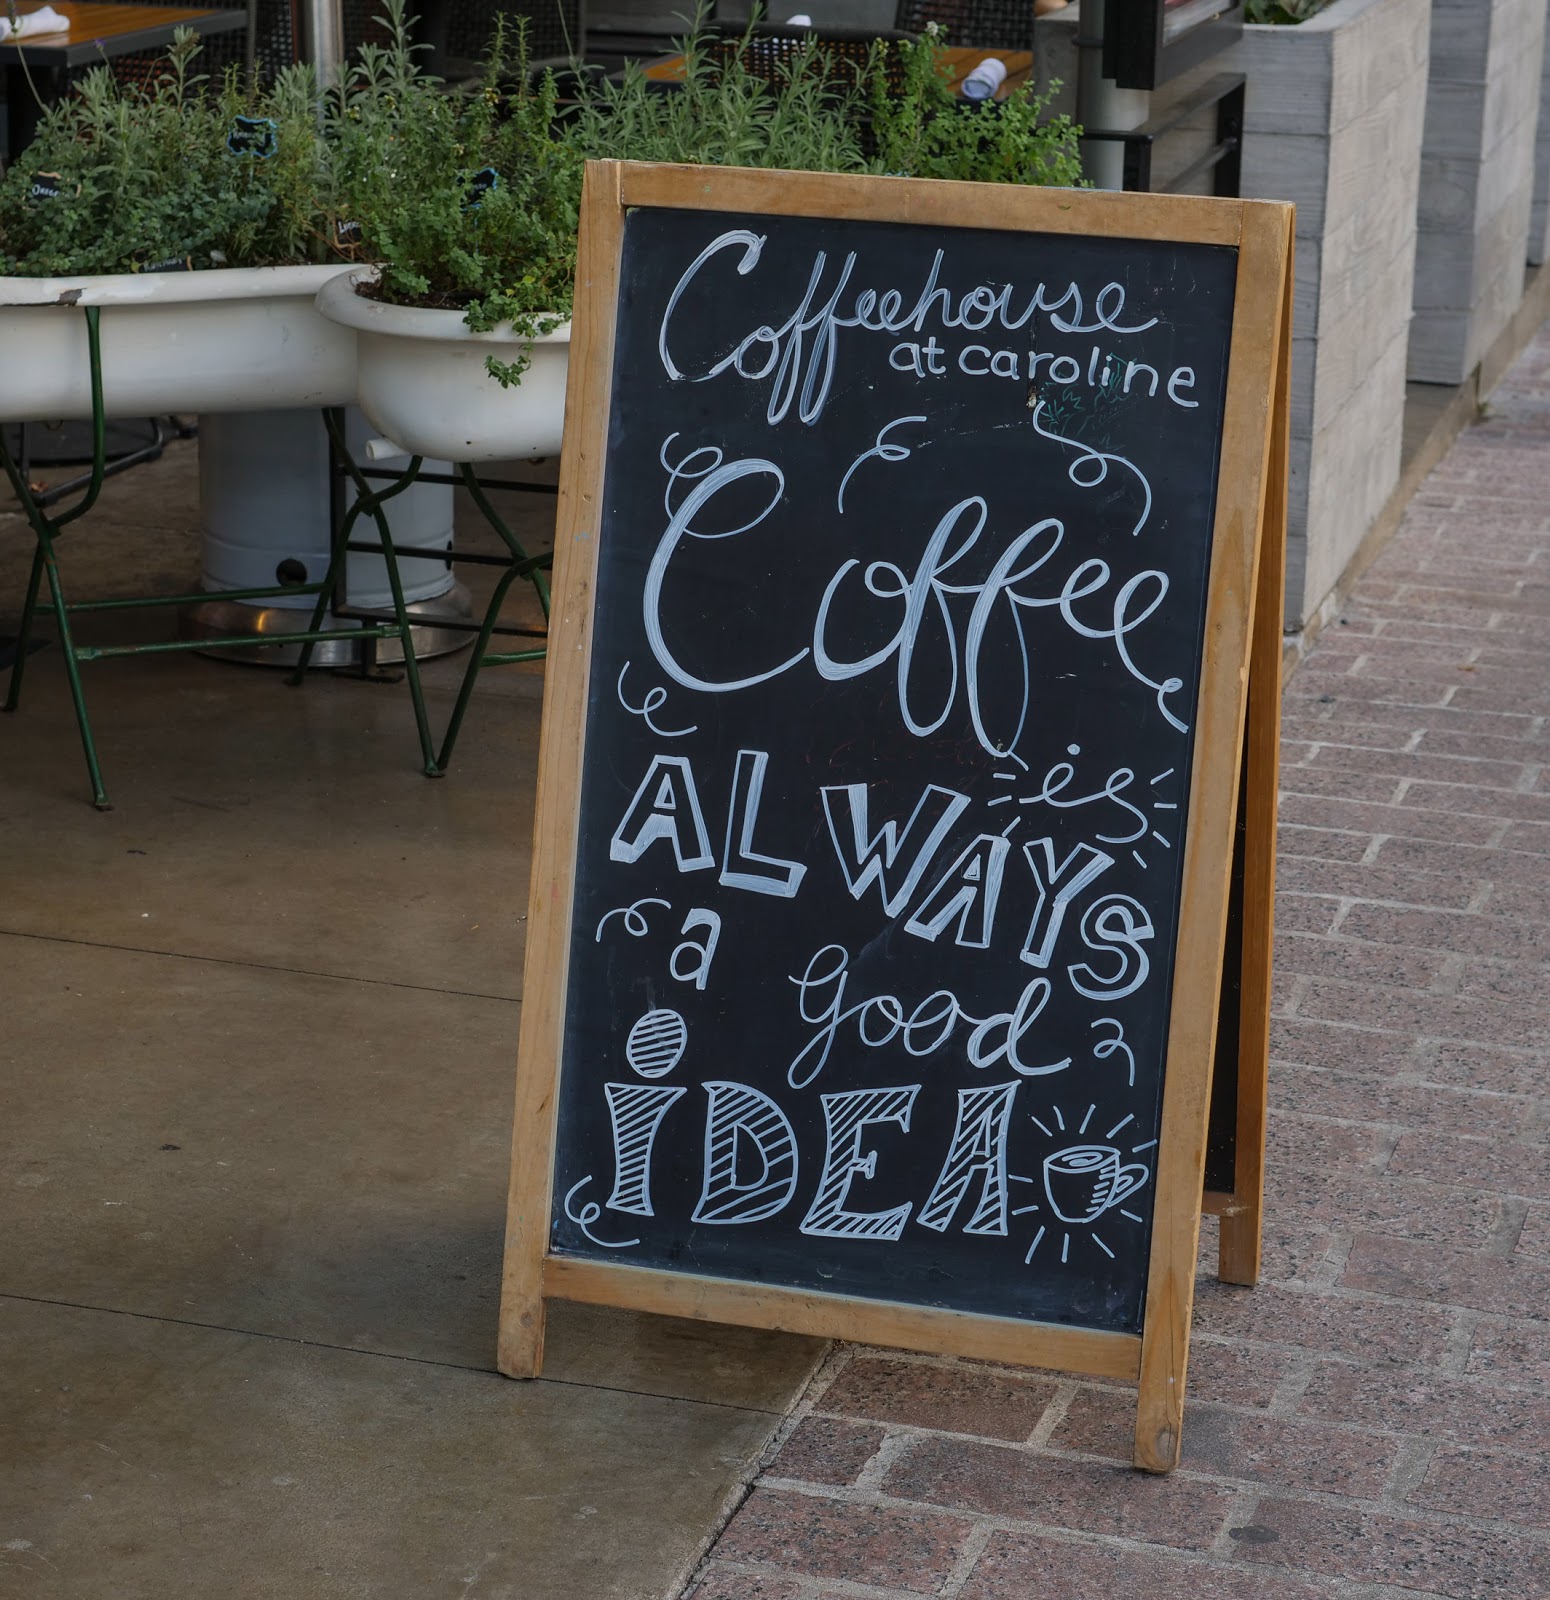 Coffeehouse
at caroline
Coffee
is
ALWAYS
a good
iDEA